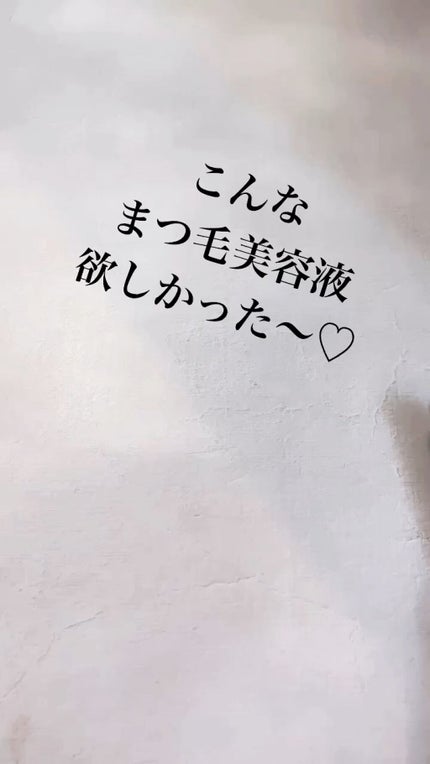 こんな
まつ毛美容液
欲しかった〜♡